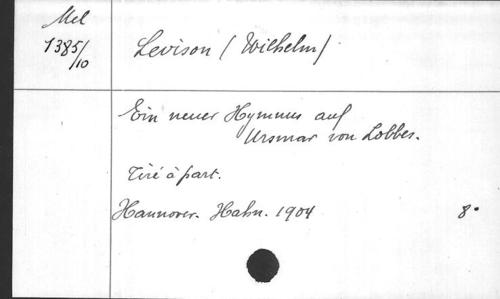 Mel
1385/10
Levison (Wilhelm)
Ein neuer Hymnus auf
Ursmar von Lobbes.
Tiré à part.
Hannover. Hahn. 1904
8°